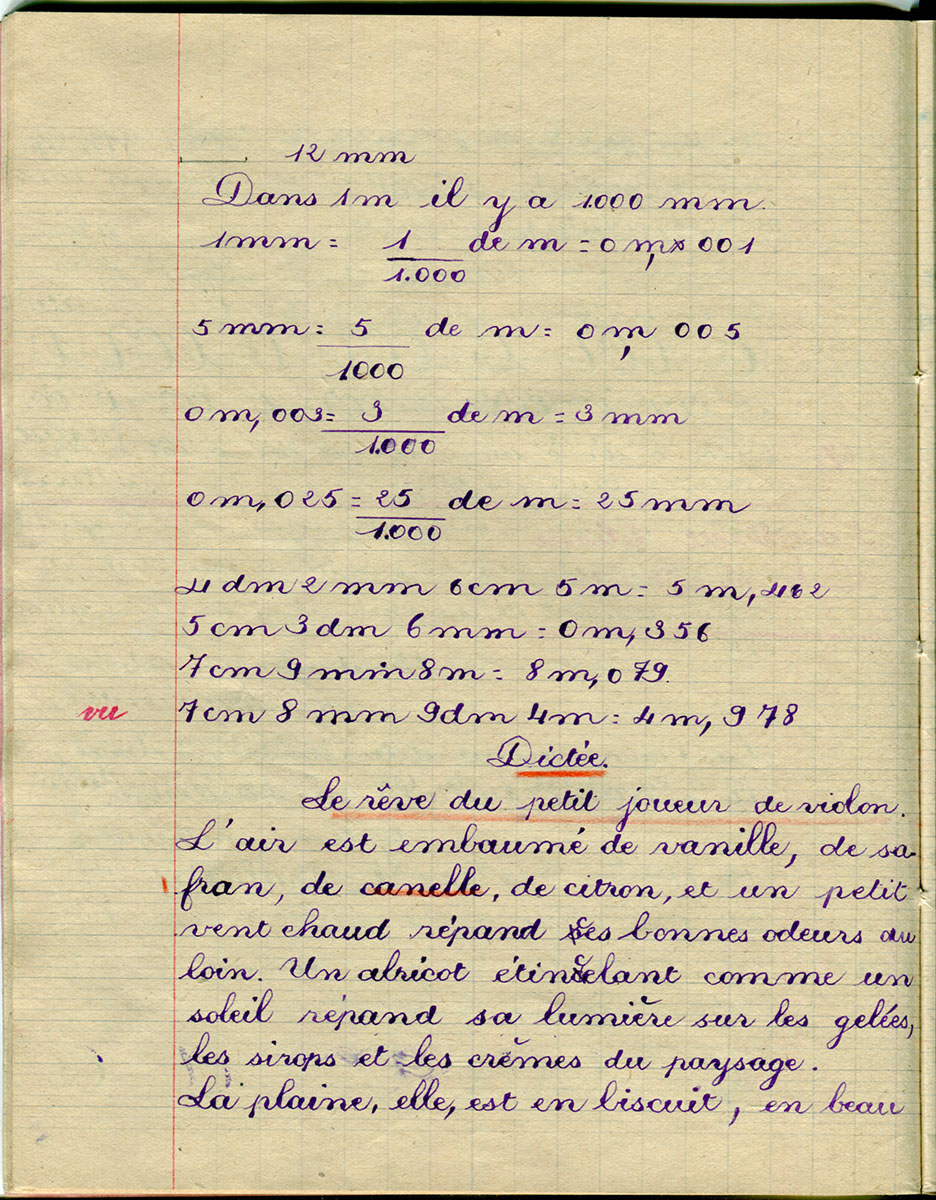 12 mm
Dans 1m il y a 1.000 mm.
1mm = 1/1.000 de m = 0 m, 001
5 mm = 5/1000 de m = 0 m, 005
0 m, 003 = 3/1.000 de m = 3 mm
0 m, 025 = 25/1.000 de m = 25 mm
4 dm 2 mm 6 cm 5 m = 5 m, 462
5 cm 3 dm 6 mm = 0 m, 356
7 cm 9 mm 8 m = 8 m, 079.
vu 7 cm 8 mm 9 dm 4 m = 4 m, 978
Dictée.
Le rêve du petit joueur de violon.
L'air est embaumé de vanille, de sa-
fran, de canelle, de citron, et un petit
vent chaud répand ces bonnes odeurs au
loin. Un abricot étincelant comme un
soleil répand sa lumière sur les gelées,
les sirops et les crèmes du paysage.
La plaine, elle, est en biscuit, en beau